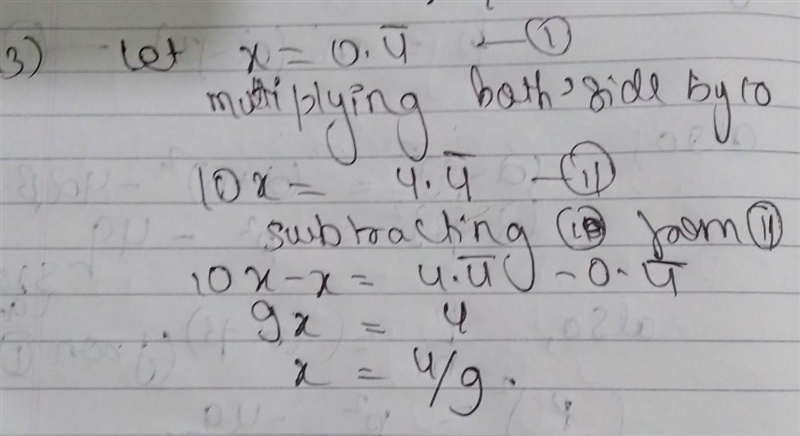 3) Let x = 0.4̅ — (I)
multiplying both side by 10
10x = 4.4̅ — (II)
subtracting (I) from (II)
10x - x = 4.4̅ - 0.4̅
9x = 4
x = 4/9.